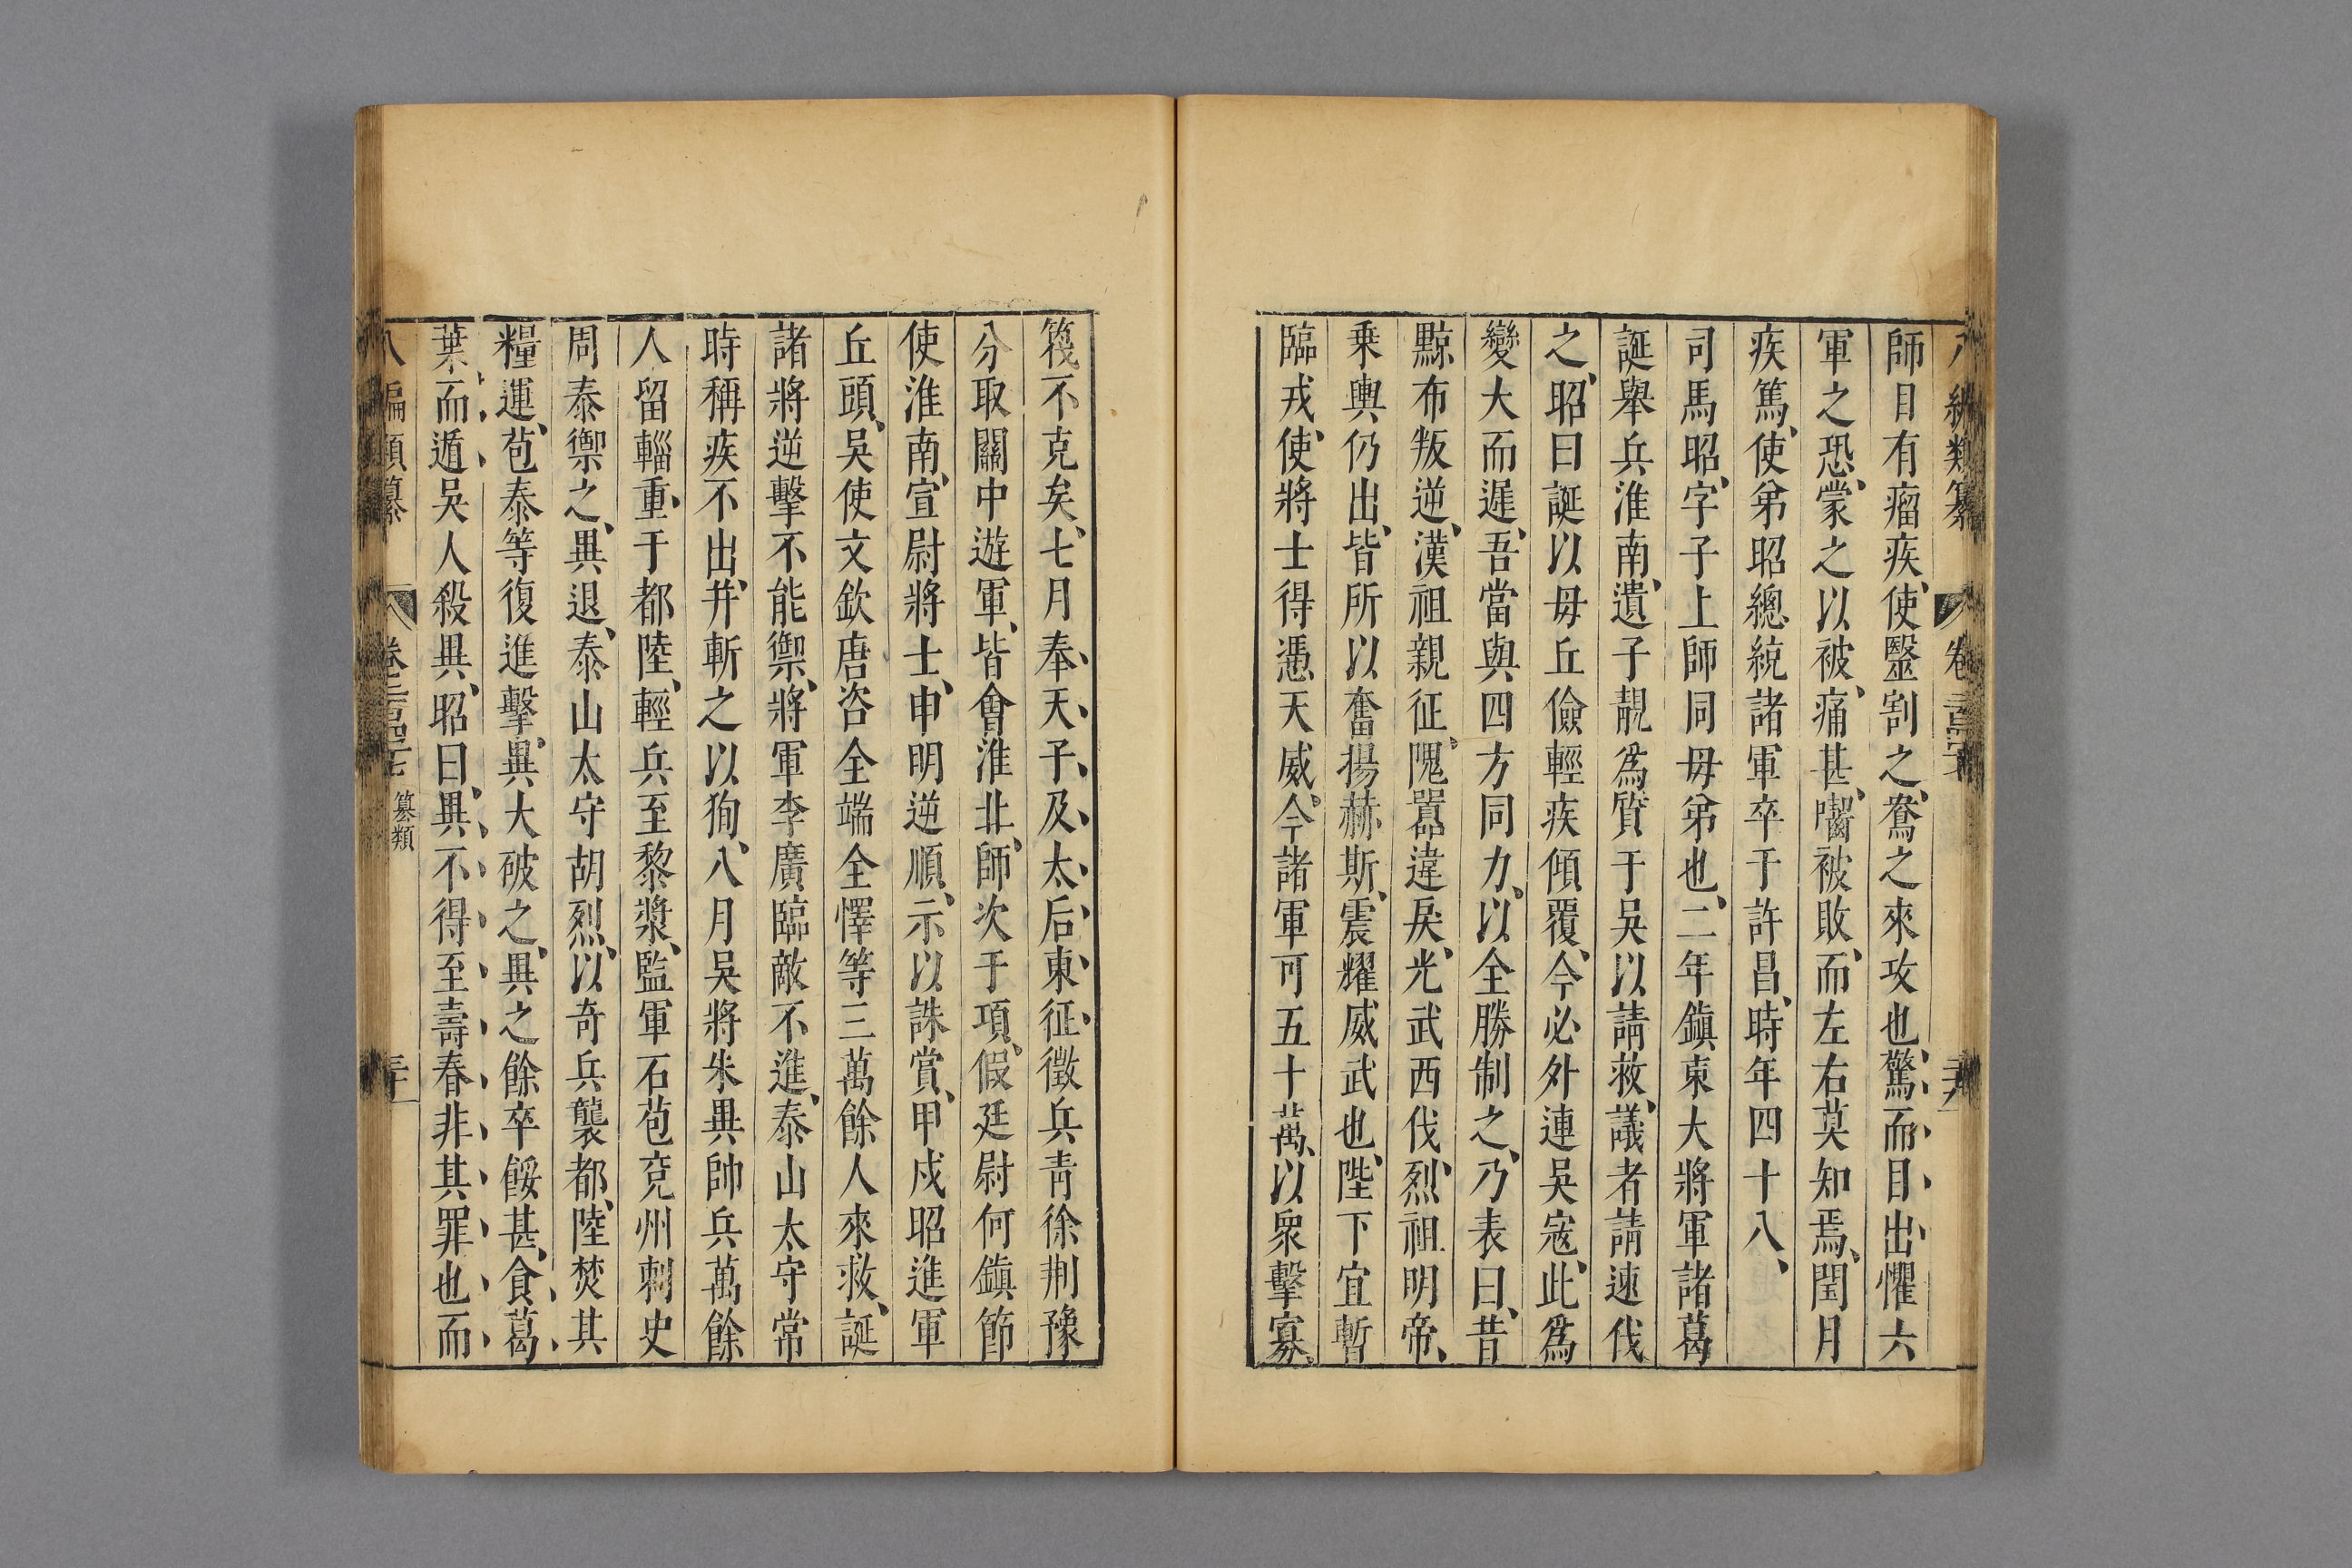 師目有瘤疾使醫割之鴦之來攻也驚而目出懼六
軍之恐蒙之以被痛甚囓被敗而左右莫知焉閏月
疾篤使弟昭總統諸軍卒于許昌時年四十八
司馬昭字子上師同母弟也二年鎮東大將軍諸葛
誕舉兵淮南遣子靚爲質于吳以請救議者請速伐
之昭曰誕以毋丘儉輕疾傾覆今必外連吳寇此爲
變大而遲吾當與四方同力以全勝制之乃表曰昔
黥布叛逆漢祖親征隗囂違戾光武西伐烈祖明帝
乗輿仍出皆所以奮揚赫斯震耀威武也陛下宜暫
臨戎使將士得憑天威今諸軍可五十萬以衆擊寡
筏不克矣七月奉天子及太后東征徵兵青徐荆豫
分取關中遊軍皆會淮北師次于項假廷尉何鎮節
使淮南宣尉將士申明逆順示以誅賞甲戍昭進軍
丘頭吳使文欽唐咨全端全懌等三萬餘人來救誕
諸將逆擊不能禦將軍李廣臨敵不進泰山太守常
時稱疾不出并斬之以狥八月吳將朱異帥兵萬餘
人留輜重于都陸輕兵至黎漿監軍石苞兗州刺史
周泰禦之異退泰山太守胡烈以奇兵襲都陸焚其
糧運苞泰等復進擊異大破之異之餘卒餒甚食葛
葉而遁吳人殺異昭曰異不得至壽春非其罪也而
八編類纂 纂類